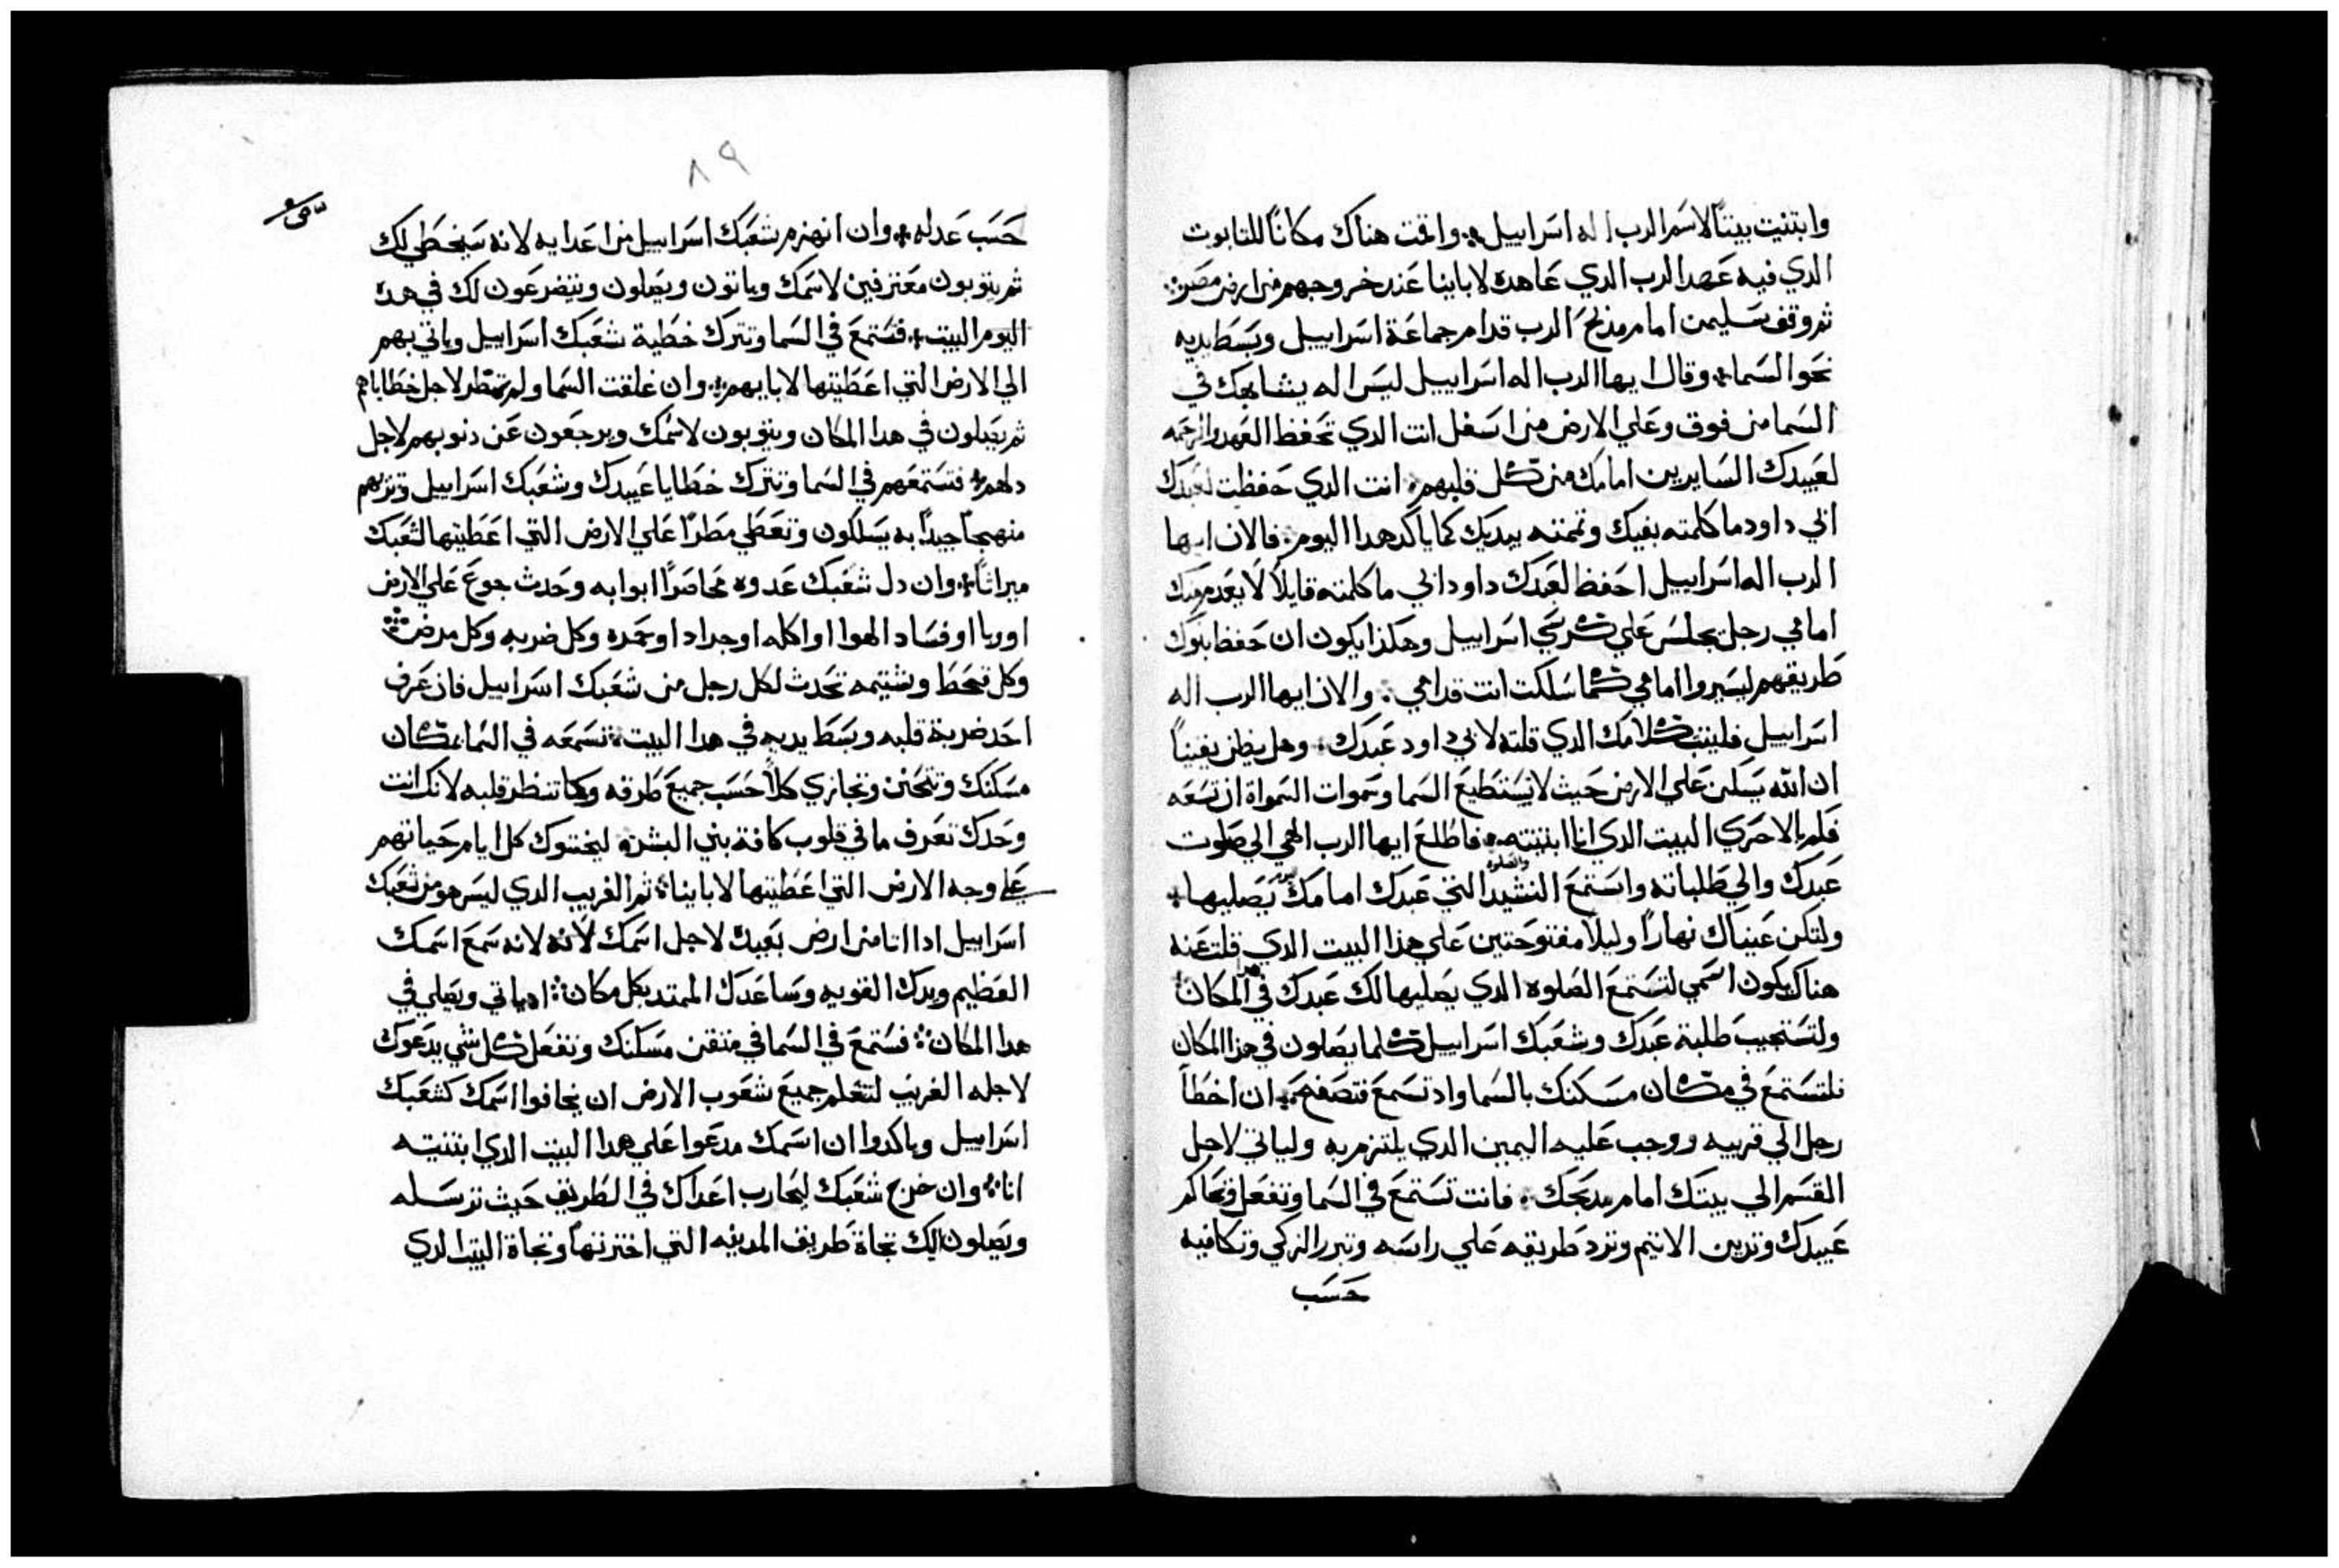 وابتنيت بيتاً لاسم الرب اله اسراييل واقمت هناك مكاناً للتابوت
الدي فيه عهد الرب الدي عاهده لاباينا عند خروجهم من ارض مصر
ثم وقف سليمن امام مذبح الرب قدام جماعة اسراييل وبسط يديه
نحو السما وقال ايها الرب اله اسراييل ليس اله يشابهك في
السما من فوق وعلي الارض من اسفل انت الدي تحفظ العهد والرحمه
لعبيدك السايرين امامك من كل قلبهم انت الدي حفظت لعبدك
ابي داود ما كلمته بفيك وتممته بيديك كما ياكد هدا اليوم فالان ايها
الرب اله اسراييل احفظ لعبدك داود ابي ما كلمته قايلاً لا يعدم منك
امامي رجل يجلس علي كرسي اسراييل وهكذا يكون ان حفظ بنوك
طريقهم ليسيروا امامي كما سلكت انت قدامي والان ايها الرب اله
اسراييل فليثبت كلامك الدي قلته لابي داود عبدك وهل يظن يقيناً
ان الله يسكن علي الارض حيث لا يستطيع السما وسموات السمواة ان تسعه
فلم بالاحري البيت الدي انا ابتنيته فاطلع ايها الرب الهي الي صلوت
عبدك والي طلباته واستمع النشيد والصلوه التي عبدك امامك يصليها
ولتكن عيناك نهاراً وليلاً مفتوحتين علي هذا البيت الدي قلت عنه
هناك يكون اسمي لتستمع الصلوه الدي يصليها لك عبدك في المكان
ولتستجيب طلبة عبدك وشعبك اسراييل كلما يصلون في هذا المكان
فلتستمع في مكان مسكنك بالسما واد تسمع فتصفح ان اخطا
رجل الي قريبه ووجب عليه اليمين الدي يلتزم به ولياتي لاجل
القسم الي بيتك امام مدبحك فانت تستمع في السما وتفعل وتحاكم
عبيدك وتدين الاتيم وترد طريقه علي راسه وتبرر الزكي وتكافيه
حسب
٨٩
حسب عدله وان انهزم شعبك اسراييل من اعدايه لانه سيخطي لك
ثم يتوبون معترفين لاسمك وياتون ويصلون ويتضرعون لك في هده
اليوم البيت فتستمع في السما وتترك خطية شعبك اسراييل وياتي بهم
الي الارض التي اعطيتها لابايهم وان غلقت السما ولم تمطر لاجل خطاياهم
ثم يصلون في هدا المكان ويتوبون لاسمك ويرجعون عن دنوبهم لاجل
دلهم فتستمعهم في السما وتترك خطايا عبيدك وشعبك اسراييل وتريهم
منهجاً جيداً به يسلكون وتعطي مطراً علي الارض التي اعطيتها لشعبك
ميراثاً وان دل شعبك عدوه محاصراً ابوابه وحدث جوع علي الارض
او ربا او فساد الهوا او اكله او جراد او سمده وكل ضربه وكل مرض
وكل سخط وشتيمه تحدث لكل رجل من شعبك اسراييل فان عرف
احد ضربة قلبه وبسط يديه في هدا البيت تسمعه في السما بمكان
مسكنك وتتحنن وتجازي كلاً حسب جميع طرقه وكما تنظر قلبه لانك انت
وحدك تعرف ما في قلوب كافة بني البشر ليختشوك كل ايام حياتهم
علي وجه الارض التي اعطيتها لاباينا ثم الغريب الدي ليس هو من شعبك
اسراييل ادا اتا من ارض بعيدة لاجل اسمك لانه لانه سمع اسمك
العظيم ويدك القويه وساعدك الممتد بكل مكان ادياتي ويصلي في
هدا المكان فستمع في السما في متقن مسكنك وتفعل كل شي يدعوك
لاجله الغريب لتعلم جميع شعوب الارض ان يخافوا اسمك كشعبك
اسراييل وياكدوا ان اسمك مدعوا علي هدا البيت الدي ابتنيته
انا وان خرج شعبك ليحارب اعداك في الطريق حيث ترسله
ويصلون اليك تجاة طريق المدينه التي اخترتها وتجاة البيت الدي